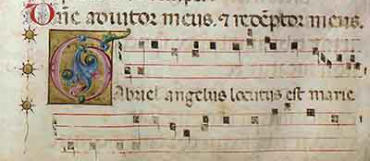 Dn̄e adiutor meus. ⁊ redēptor meus.
Gabriel angelus locutus est marie